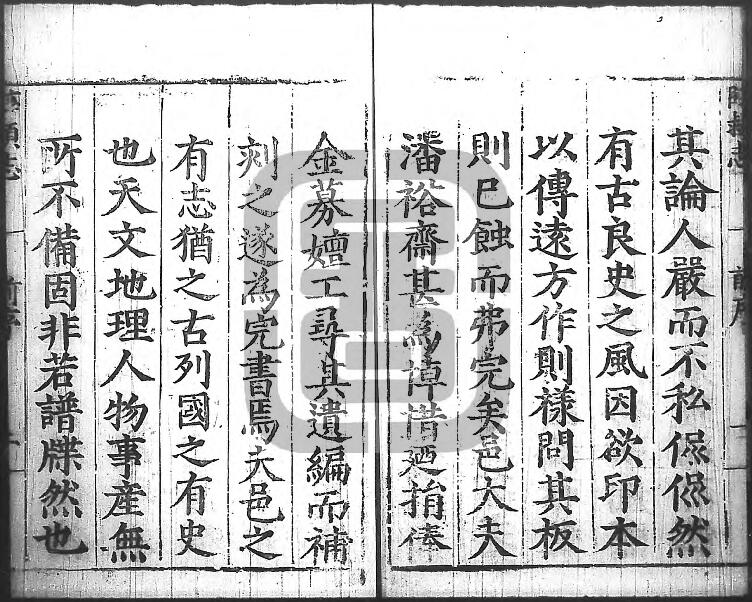 其論人嚴而不私偘偘然
有古良史之風因欲印本
以傳遠方作則樣問其板
則已蝕而弗完矣邑大夫
潘裕齋甚為悼惜廼捐俸
金募嬗工尋其遺編而補
刻之遂為完書焉夫邑之
有志猶之古列國之有史
也天文地理人物事產無
所不備固非若譜牒然也